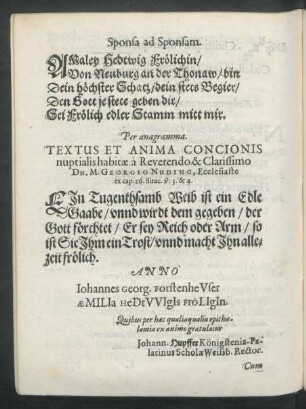 Sponsa ad Sponsam.
AMaley Hedtwig Frölichin/
Von Neuburg an der Thonaw/ bin
Dein höchster Schatz/ dein stets Begier/
Den Gott je stete geben dir/
Sei Frölich edler Stamm mitt mir.
Per anagramma.
TEXTUS ET ANIMA CONCIONIS
nuptialis habitæ à Reverendo & Clarissimo
DN. M. GEORGIO NUDING, Ecclesiaste
ex cap. 26. Sirac. v. 3. & 4.
EIn Tugenthsamb Weib ist ein Edle
Gaabe/ vnnd wirdt dem gegeben / der
Gott förchtet / Er sey Reich oder Arm / so
ist Sie Ihm ein Trost/ vnnd macht Ihn alle-
zeit frölich.
ANNO
Iohannes Georg. ForstenheVser
æMILIa HeDtVVIgIs FröLIgIn.
Quibus per hæc qualiaqualia epitha-
lamia ex animo gratulatur
Johann. Königstenia-Pa-
latinus Scholæ Weissb. Rector.
Cum